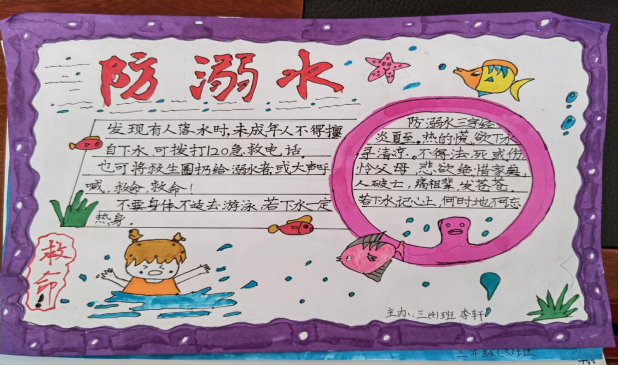 防溺水
发现有人落水时,未成年人不得擅
自下水 可拨打120急救电话,
也可将救生圈扔给溺水者或大声呼
喊,救命,救命!
不要身体不适去游泳,若下水一定
热身.
防溺水三字经
炎夏至.热的慌,欲下水
寻清凉.不得法.死或伤
怜父母,悲欲绝惜家庭,
人破亡,痛相聚 发苍苍.
若下水记心上,何时地不忘
救命
主办:三(4)班 李轩